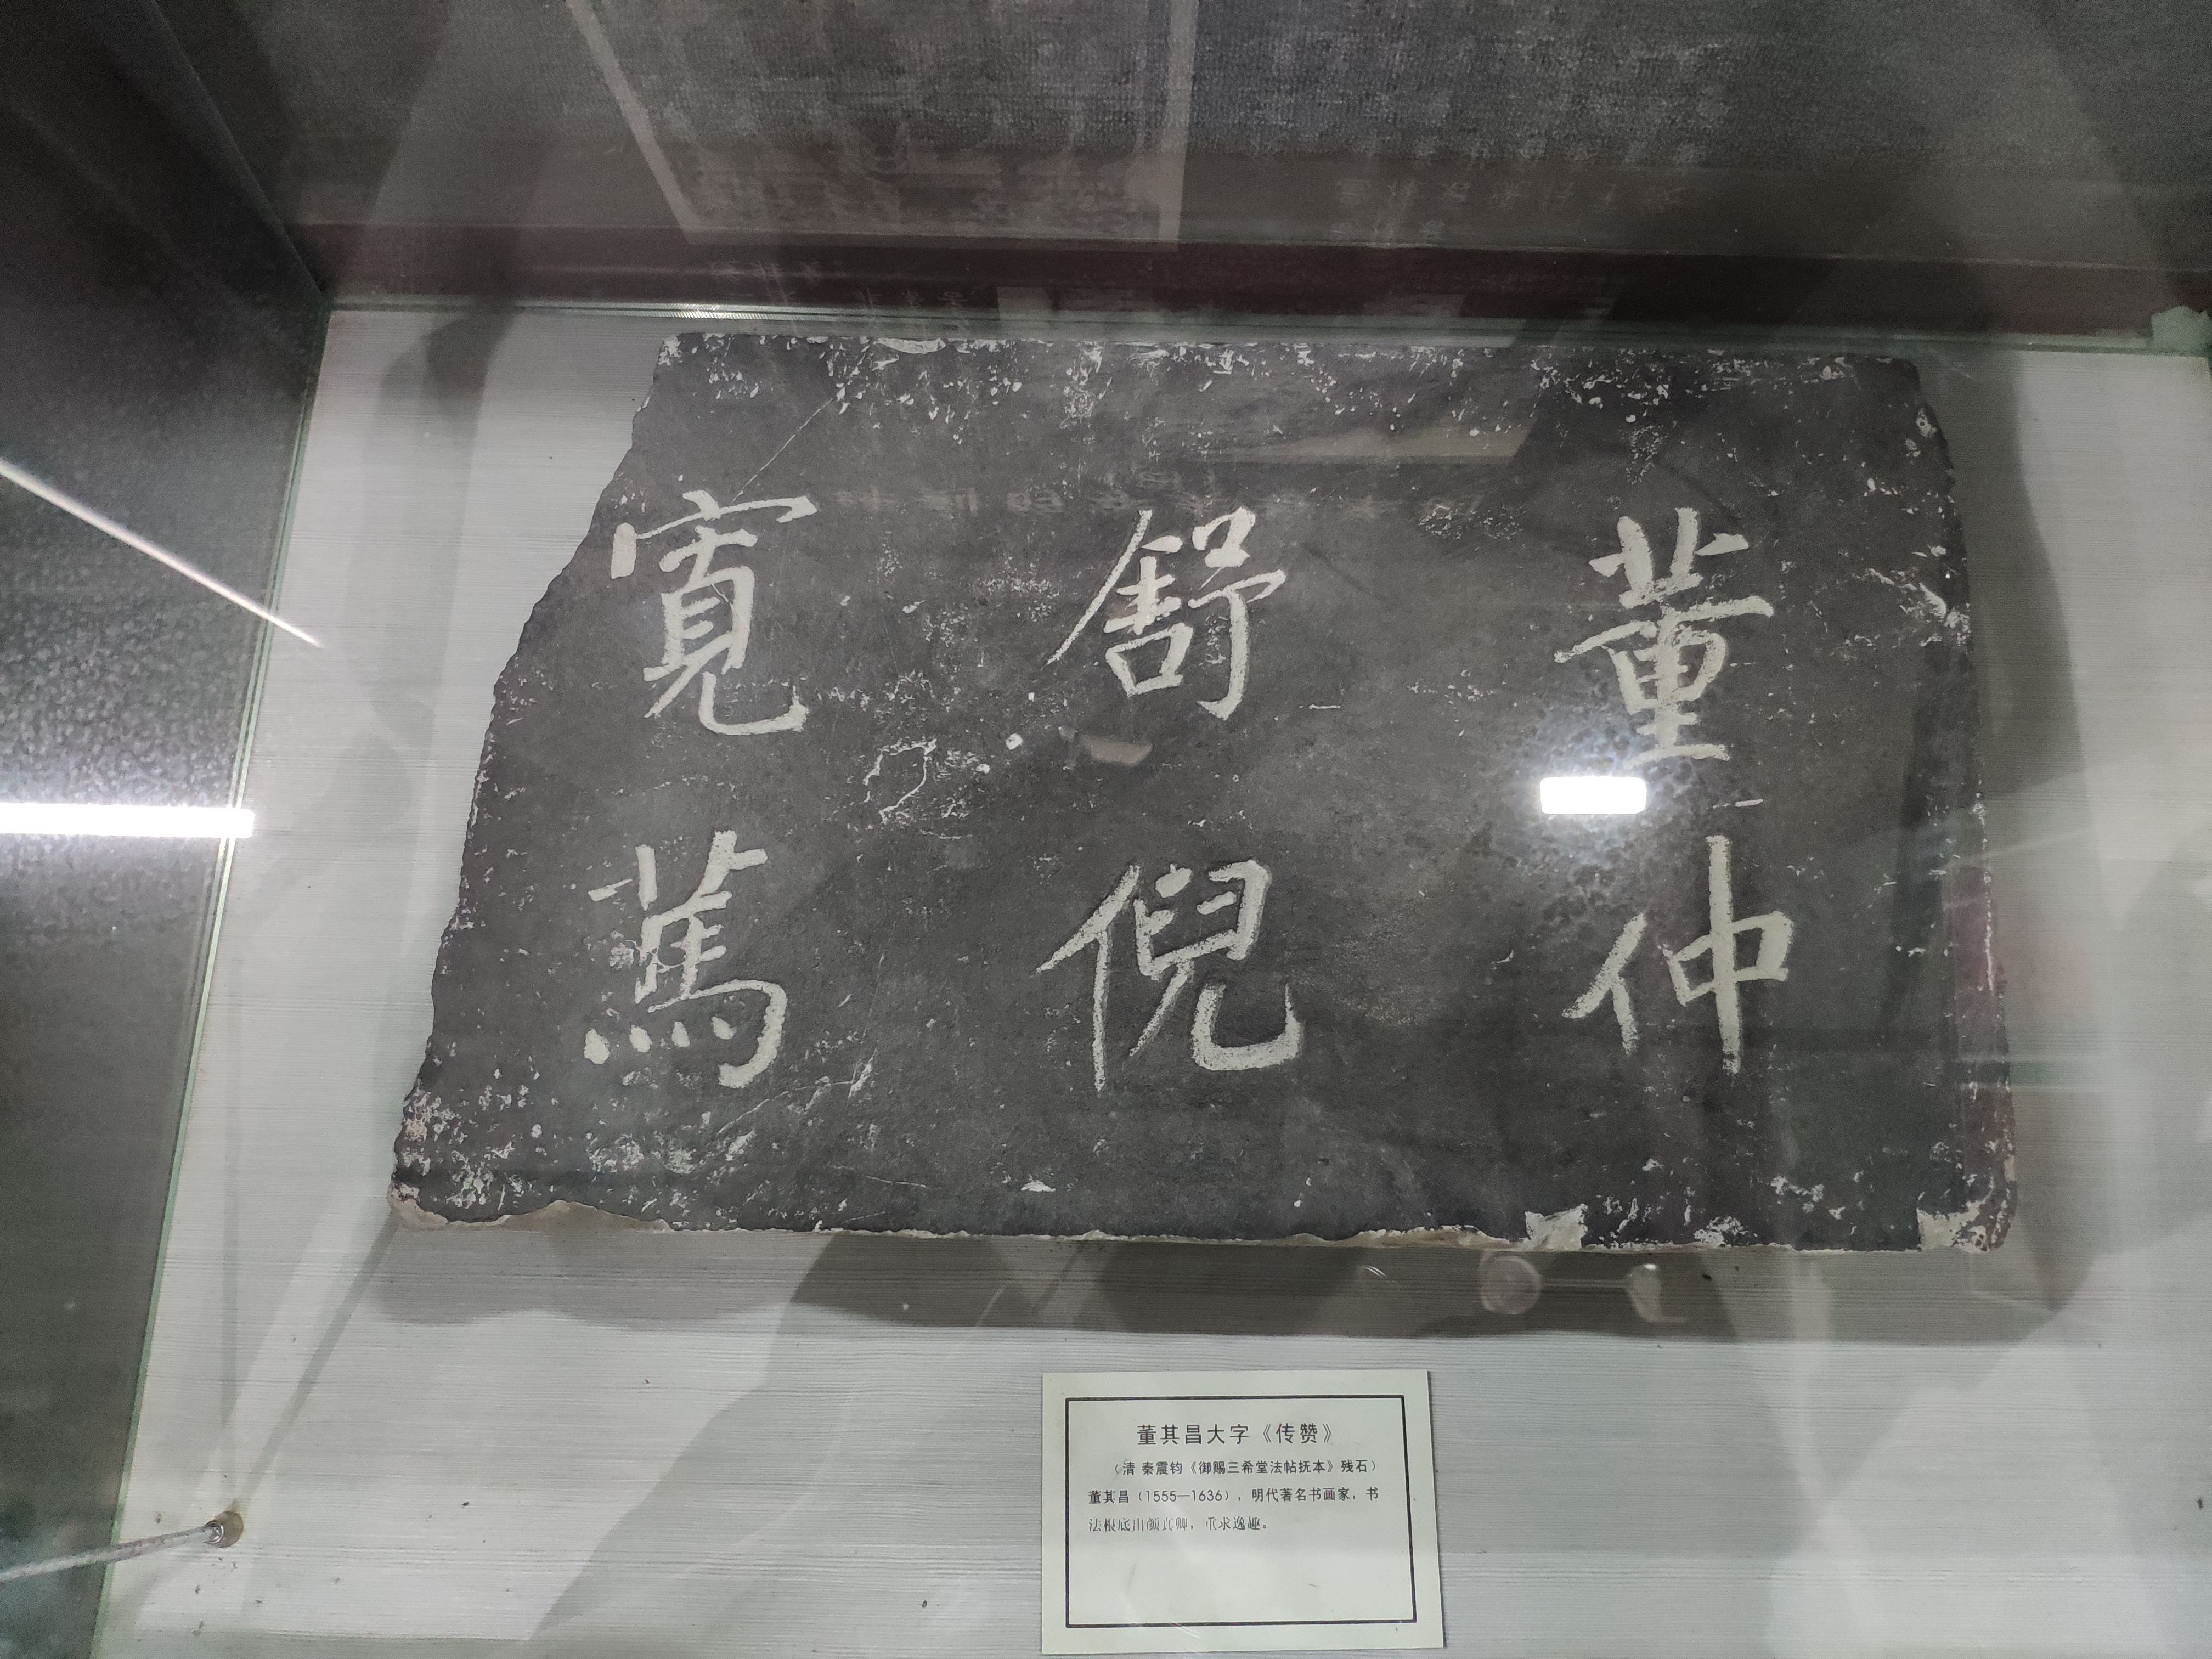 董仲
舒倪
寬篤
董其昌大字《传赞》
（清 秦震钧《御赐三希堂法帖抚本》残石）
董其昌（1555—1636），明代著名书画家，书
法根底出颜真卿，重求逸趣。